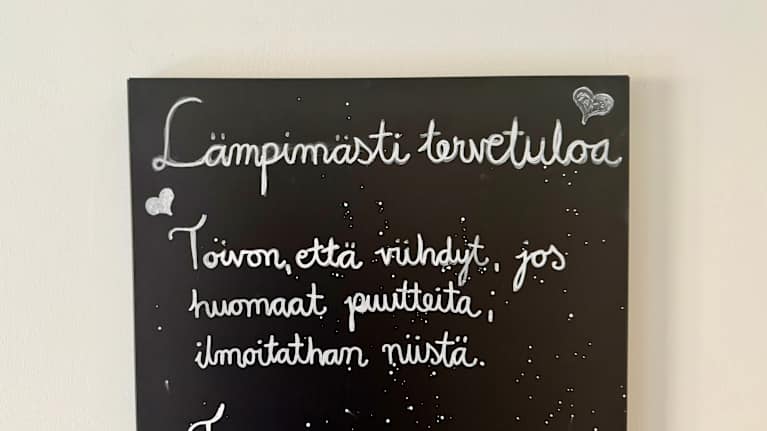 Lämpimästi tervetuloa
Toivon, että viihdyt, jos
huomaat puutteita,
ilmoitathan niistä.